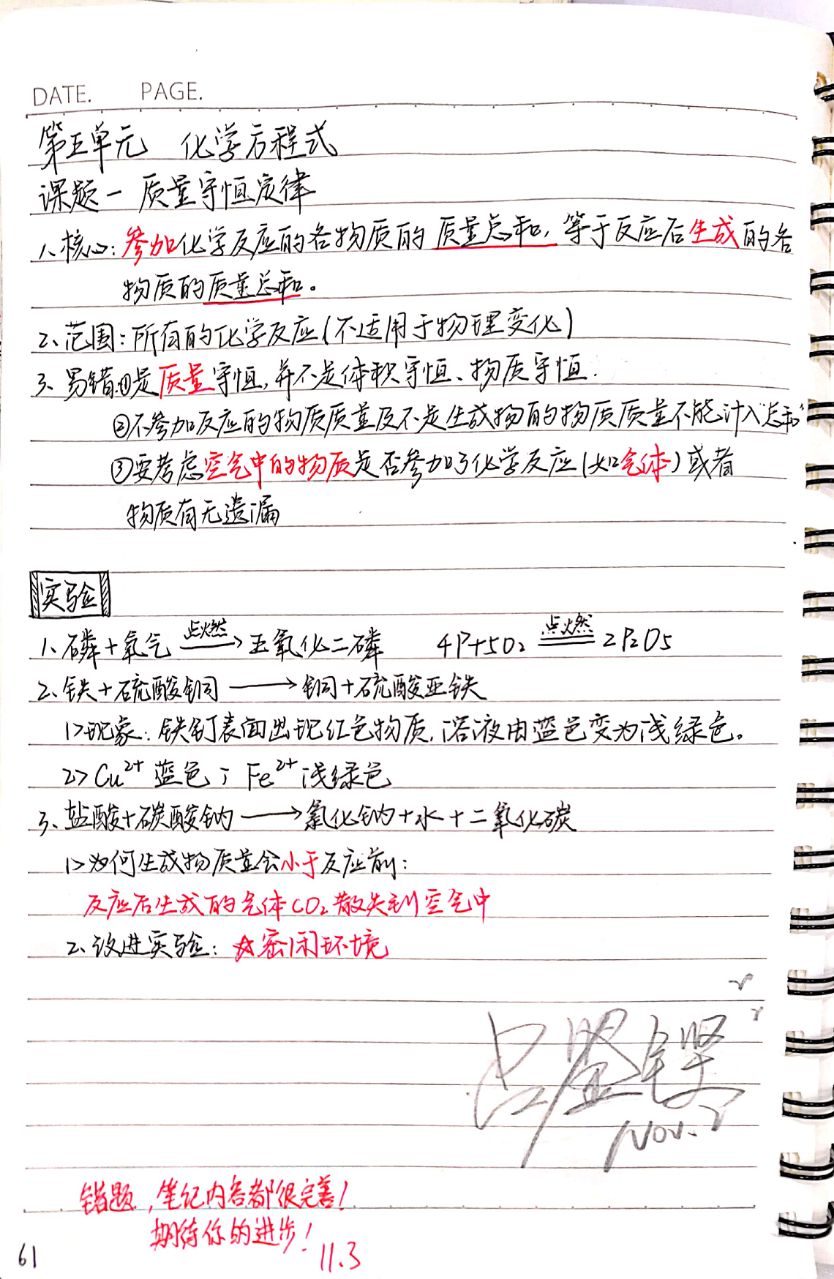 DATE. PAGE.
第五单元 化学方程式
课题一 质量守恒定律
1、核心:参加化学反应的各物质的质量总和,等于反应后生成的各
物质的质量总和。
2、范围:所有的化学反应(不适用于物理变化)
3、易错:①是质量守恒,并不是体积守恒、物质守恒.
②不参加反应的物质质量及不是生成物的物质质量不能计入"总和"
③要考虑空气中的物质是否参加了化学反应(如气体)或者
物质有无遗漏
实验
1、磷+氧气 点燃→ 五氧化二磷 4P+5O₂ 点燃═ 2P₂O₅
2、铁+硫酸铜→铜+硫酸亚铁
1>现象:铁钉表面出现红色物质,溶液由蓝色变为浅绿色。
2>Cu²⁺蓝色;Fe²⁺浅绿色
3、盐酸+碳酸钠→氯化钠+水+二氧化碳
1>为何生成物质量会小于反应前:
反应后生成的气体CO₂散失到空气中
2、改进实验:☆密闭环境
Nov.
错题,笔记内容都很完善!
期待你的进步!
11.3
61